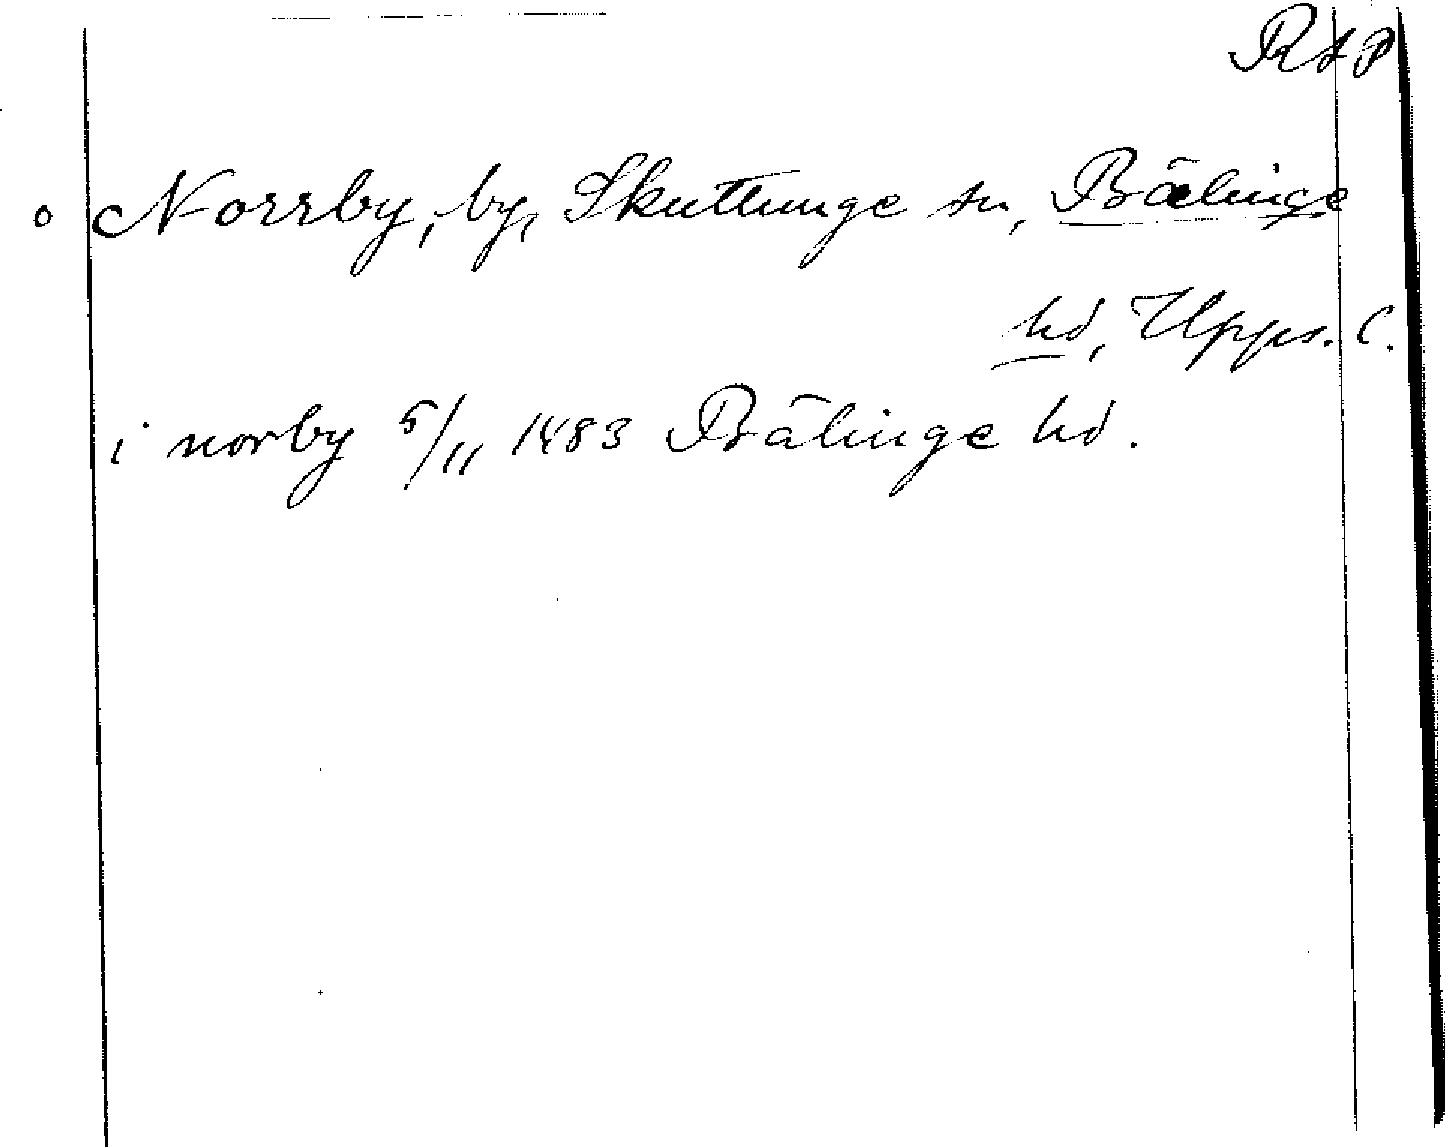 RAP
o Norrby, by, Skuttunge sn, Bälinge
hd, Upps. l.
i norby 5/11 1483 Bälinge hd.